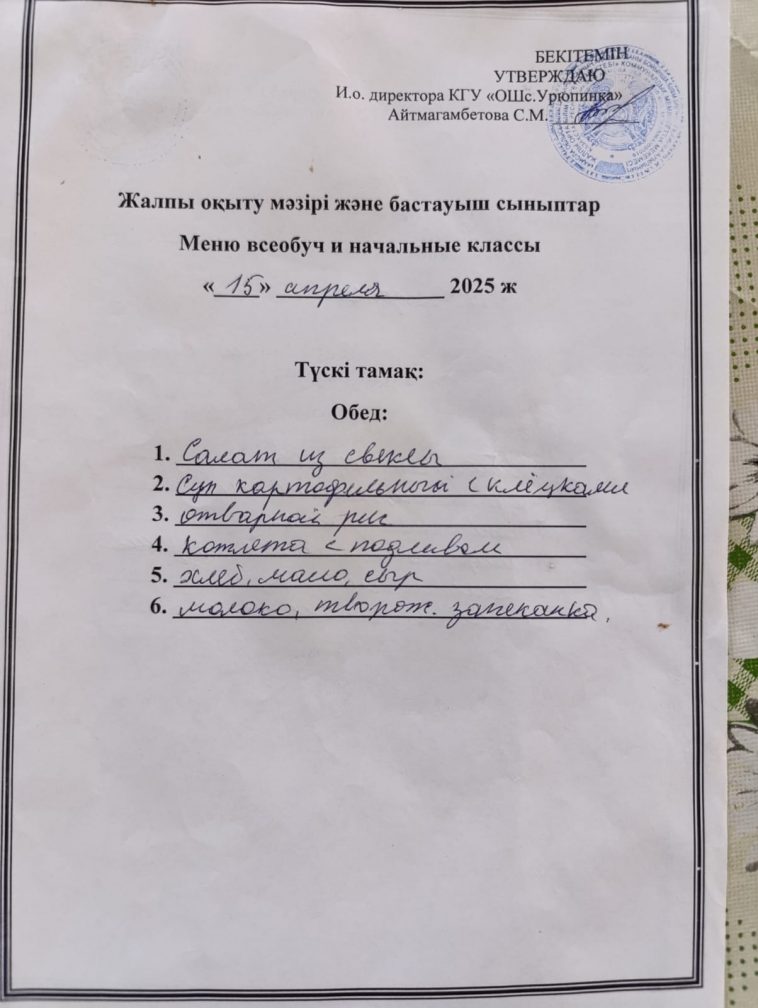 БЕКІТЕМІН
УТВЕРЖДАЮ
И.о. директора КГУ «ОШс.Урюпинка»
Айтмагамбетова С.М.
Жалпы оқыту мәзірі және бастауыш сыныптар
Меню всеобуч и начальные классы
«15» апреля 2025 ж
Түскі тамақ:
Обед:
1. Салат из свеклы
2. Суп картофельный с клёцками
3. отварной рис
4. котлета с подливом
5. хлеб, масло, сыр
6. молоко, творож. запеканка.